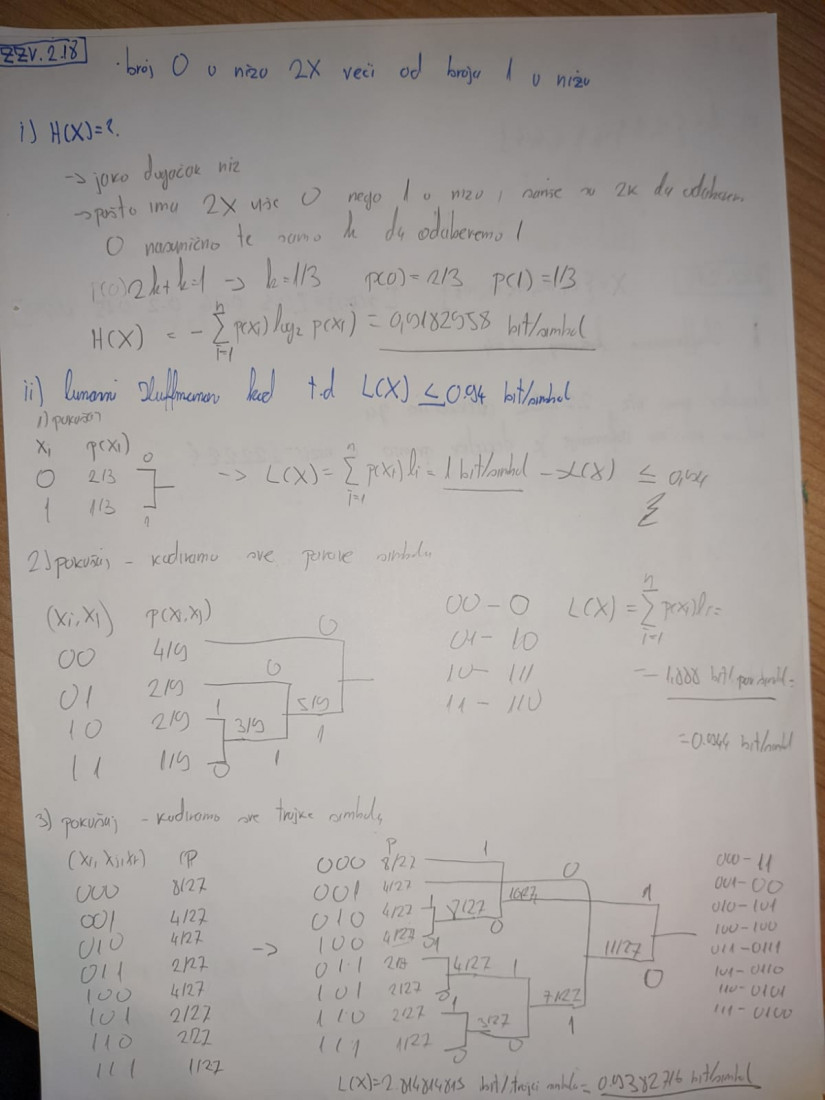 ZZV. 2.18
· broj 0 u nizu 2X veći od broja 1 u nizu
i) H(X)=?
→ jako dugačak niz
→ pošto ima 2X više 0 nego 1 u nizu, šanse su 2k da odaberemo
0 nasumično te samo k da odaberemo 1
2k+k=1 → k=1/3 p(0)=2/3 p(1)=1/3
H(X) = - Σ p(xi) log2 p(xi) = 0,9182958 bit/simbol
n
i=1
ii) binarni Huffmanov kod t.d L(X) ≤ 0.94 bit/simbol
1) pokušaj
xi p(xi)
0 2/3 0
1 1/3 1
→ L(X) = Σ p(xi) li = 1 bit/simbol → L(X) ≤ 0,94
n
i=1
2) pokušaj - kodiramo sve parove simbola
(xi,xj) p(xi,xj)
00 4/9 0
01 2/9 0
10 2/9 1 3/9 5/9
11 1/9 0 1 1
00 - 0
01 - 10
10 - 111
11 - 110
L(X) = Σ p(xi) li =
n
i=1
= 1,888 bit/par simb =
= 0.944 bit/simbol
3) pokušaj - kodiramo sve trojke simbola
(xi, xj, xk) P
000 8/27
001 4/27
010 4/27
011 2/27
100 4/27
101 2/27
110 2/27
111 1/27
→
P
000 8/27 1
001 4/27
010 4/27 1 8/27 16/27 0
100 4/27 0
011 2/27 1 4/27 1 11/27
101 2/27 0 7/27
110 2/27 1 3/27 0 1
111 1/27 0
1
0
000 - 11
001 - 00
010 - 101
100 - 100
011 - 0111
101 - 0110
110 - 0101
111 - 0100
L(X)=2.814814815 bit/trojci simbola = 0.9382716 bit/simbol